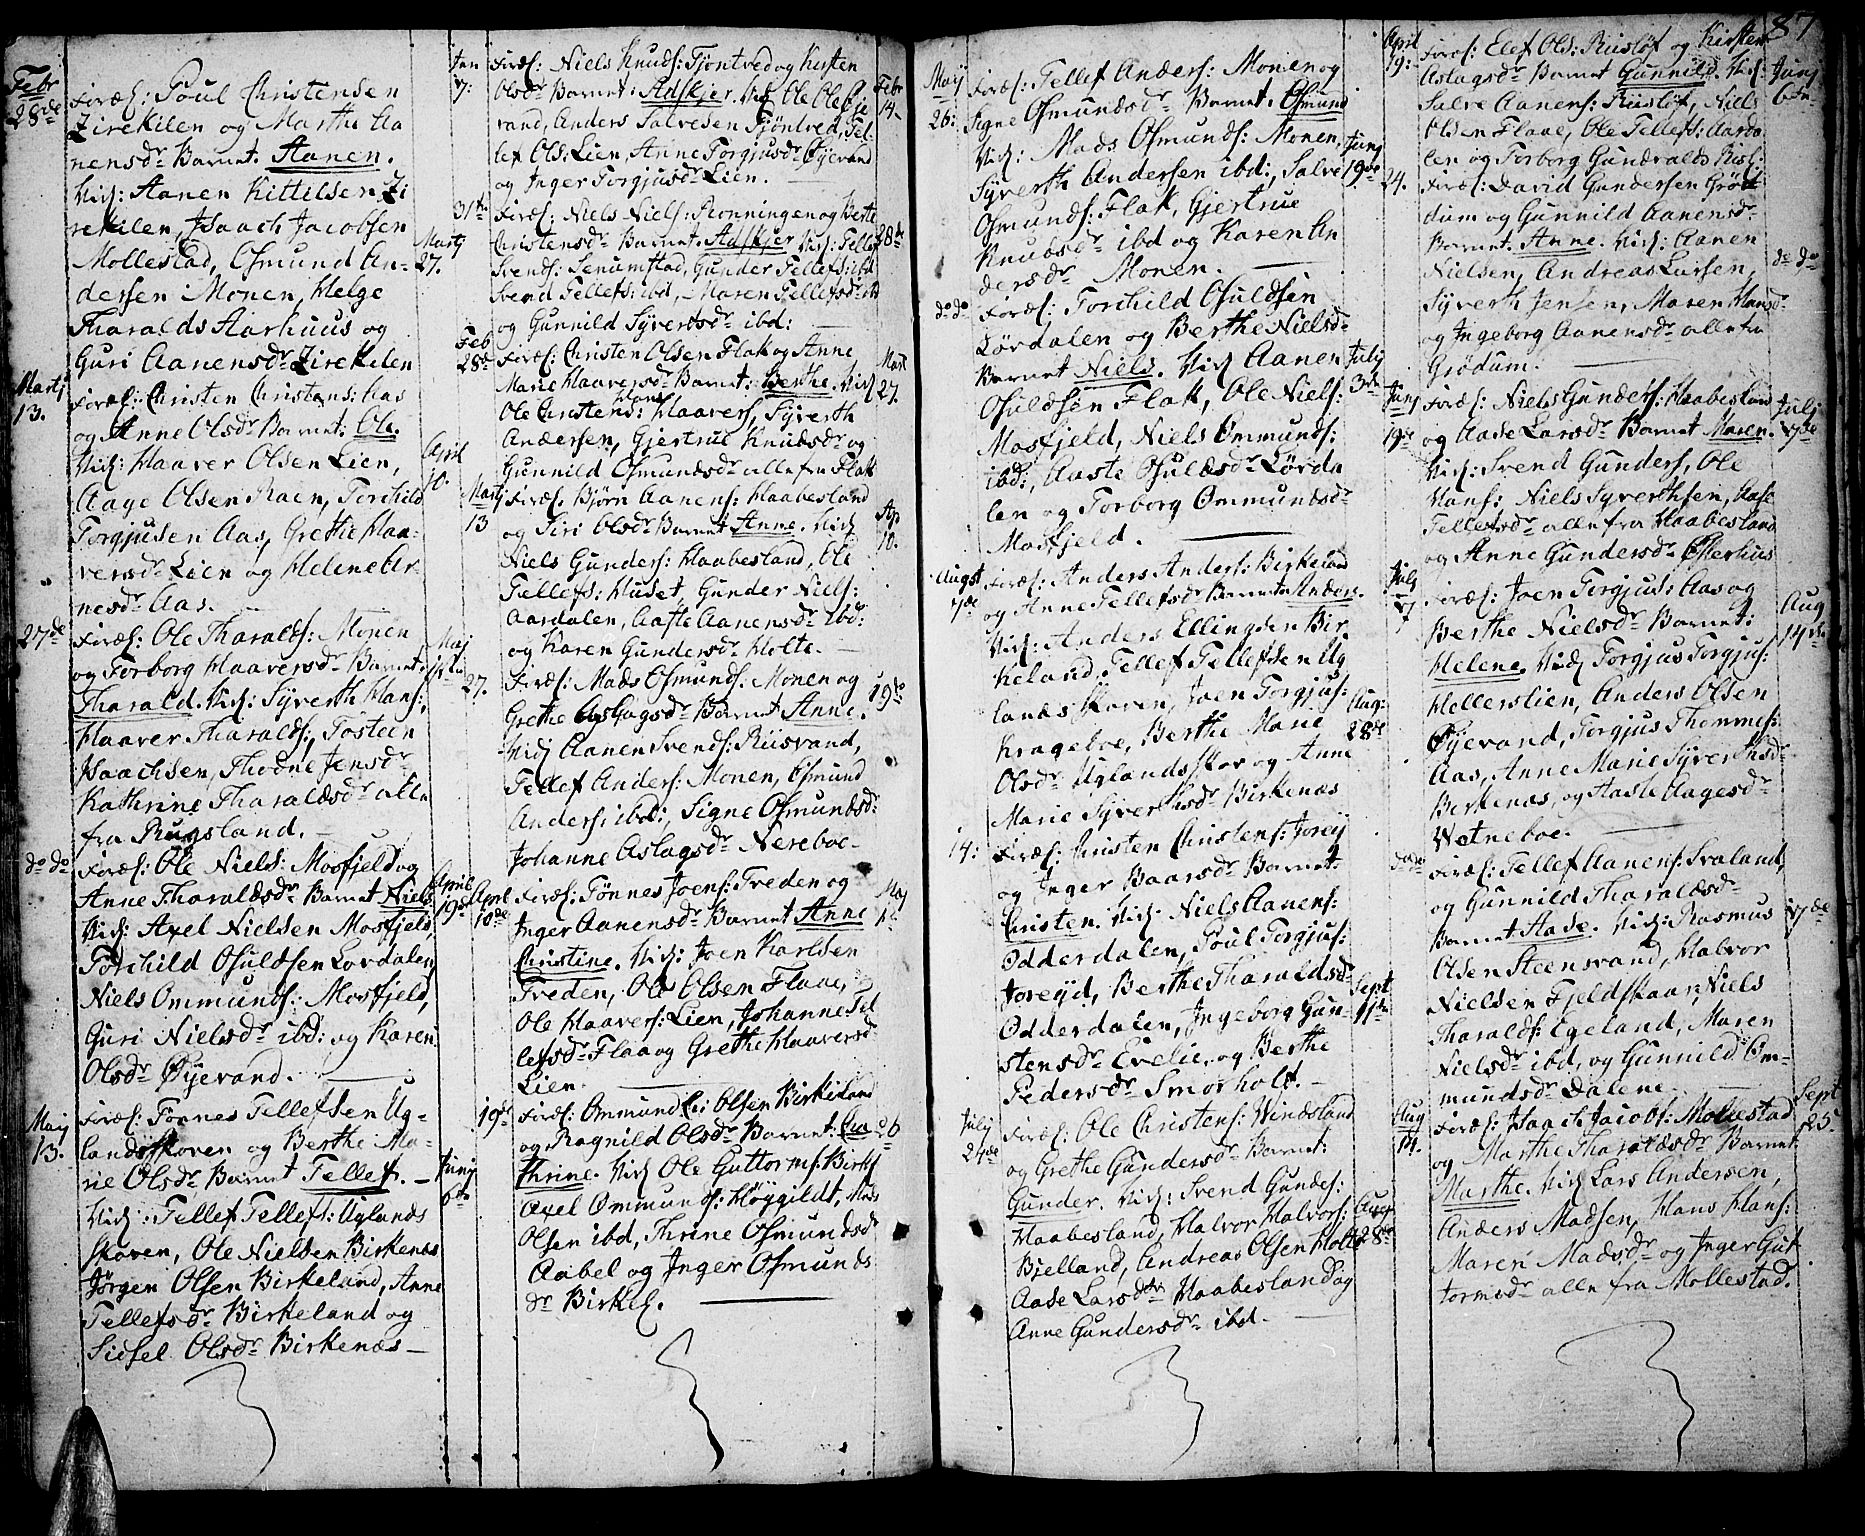 87
Febr
28de
Foræl: Poul Christensen
Zirekilen og Marthe Aa
nensdr Barnet. Aanen.
Vid: Aanen Kittilsen Zi
rekilen, Isaach Jacobsen
Mollestad, Osmund An-
dersen Monen, Helge
Tharalds Aarhuus og
Guri Aanensdr Zirekilen
Martj
27.
Martj
13.
Foræl: Christen Christens:
og Anne Olsdr Barnet: Ole.
Vid: Haaver Olsen Lien,
Aage Olsen Raen, Torchild
Torgjusen Aas, Grethe Haa-
versdr Lien og Helene Ar-
nesdr Aas.
April
10.
27de
Foræl: Ole Tharalds: Monen
og Torborg Haaversdr Barnet:
Tharald. Vid: Syverth Hans:,
Haaver Tharalds:, Tosteen
Isaachsen, Thodne Jensdr
Kathrine Tharaldsdr alle
fra Rugsland.
Maj
do do
Foræl: Ole Niels: Mosfjeld og
Anne Tharaldsdr Barnet Niels
Vid: Axel Nielsen Mosfjeld,
Torchild Osuldsen Lordalen
Niels Ommunds: Mosfjeld,
Guri Nielsdr ibd: og Karen
Olsdr Øyevand.
April
19de
Maij
13.
Foræl: Tønnes Tellefsen Ug-
landsskoven og Berthe Ma-
rie Olsdr Barnet Tellef.
Vid: Tellef Tellefs: Uglands
skoven, Ole Nielsen Birkenæs
Jørgen Olsen Birkeland, Anne
Tellefsdr Birkeland og
Sidsel Olsdr Birkenæs
Junij
6te
Jan
7:
Foræl: Niels Knuds: Tjøntved og Kirsten
Olsdr Barnet. Adskjer. Vid Ole Ols Øje
vand, Anders Salvesen Tjøntved, Tel-
lef Ols: Lien, Anne Torgjusdr Øyevand
og Inger Torgjusdr Lien.
Febr
14.
31te
Foræl: Niels Niels: Ronningen og Berte
Christensdr Barnet. Adskjer Vid: Tellef
Svends: Senumstad, Gunder Tellefs: ibd
Svend Tellefs: ibd, Maren Tellefsdr ibd
og Gunnild Syvertsdr ibd:
28de
Feb
28de
Foræl: Christen Olsen Flak og Anne
Marie Haaversdr Barnet: Berthe. Vid
Ole Christens: Hans Haavers, Syverth
Andersen, Gjertrue Knudsdr og
Gunnild Osmundsdr alle fra Flak
Mart
27.
Martj
13
Foræl. Bjørn Aanens: Haabesland
og Siri Olsdr Barnet Anne. Vid
Niels Gunders: Haabesland, Ole
Tellefs: Huset, Gunder Niels:
Aardalen, Aaste Aanensdr ibd:
og Karen Gundersdr Holte.
Ap
10.
27.
Foræl: Mads Osmunds: Monen og
Grethe Aslagsdr Barnet Anne.
Vid Aanen Svends: Riisvand,
Tellef Anders: Monen, Osmund
Anders: ibd:, Signe Osmundsdr
Johanne Aslagsdr Nereboe
19de
April
10de
Foræl: Tønnes Joens: Treden og
Inger Aanensdr Barnet Anne
Christine. Vid: Joen Karlsen
Treden, Ole Olsen Flaae,
Ole Haavers: Lien, Johanne Tel
lefsdr Flaa og Grethe Haaversdr
Lien
Maj
19de
Foræl: Ommund Olsen Birkeland
og Ragnild Olsdr Barnet: Ca
thrine. Vid Ole Guttorms: Birk:
Axel Ommunds: Høygildt, Mads
Olsen ibd, Thrine Osmundsdr
Aabel og Inger Osmunds
dr Birkel.
26
Maij
26:
Foræl: Tellef Anders: Monen og
Signe Osmundsdr Barnet. Osmund
Vid: Mads Osmunds: Monen,
Syverth Andersen ibd:, Salve
Osmunds: Flak, Gjertrue
Knudsdr ibd og Karen An
dersdr Monen.
Junj
19de
do do
Foræl: Torchild Osuldsen
Lordalen og Berthe Nielsdr
Barnet Niels. Vid Aanen
Osuldsen Flak, Ole Niels:
Mosfjeld, Niels Ommunds:
ibd:, Aaste Osuldsdr Lørda
len og Torborg Ommundsdr
Mosfjeld.
Julij
3de
Augst
7de
Foræl: Anders Anders: Birkeland
og Anne Tellefsdr Barnet Anders.
Vid: Anders Ellingsen Bir
keland, Tellef Tellefsen Ug
landsskoven, Joen Torgjus:
Krageboe, Berthe Marie
Olsdr Uglandsskov og Anne
Marie Syverthsdr Birkenæs
Aug:
28de
14:
Foræl: Christen Christens: Joreij
og Inger Baarsdr Barnet:
Christen. Vid: Niels Aanens:
Odderdalen, Poul Torgjus:
Joreyd, Berthe Tharaldsdr
Odderdalen, Ingeborg Gun-
stensdr Evelie, og Berthe
Pedersdr Smorholt.
Sept
11te
Julij
24de
Foræl: Ole Christens: Vindsland
og Grethe Gundersdr Barnet:
Gunder. Vid: Svend Gunders:
Haabesland, Halvor Halvors:
Bjelland, Andreas Olsen Holte
Aase Larsdtr Haabesland og
Anne Gundersdr ibd.
Aug
28de
April
19:
Foræl: Elef Ols: Riisløf og Kirsten
Aslagsdr Barnet Gunnild. Vid:
Salve Aanens: Riisløf, Niels
Olsen Flaae, Ole Tellefs: Aarda
len og Torborg Gundvalds Risl:
Junj
6te
24.
Foræl: David Gundersen Grøt
dum og Gunnild Aanensdr
Barnet. Anne. Vid: Aanen
Nielsen, Andreas Larsen,
Syverth Jensen, Maren Hansdr
og Ingeborg Aanensdr alle fra
Grødum.
do do
Junj
19de
Foræl: Niels Gunders: Haabesland
og Aase Larsdr Barnet Maren.
Vid: Svend Gunders:, Ole
Hans: Niels Syverthsen, Aase
Tellefsdr alle fra Haabesland
og Anne Gundersdr Østerhus
Julj
17de
Julj
7
Foræl: Joen Torgjus: Aas og
Berthe Nielsdr Barnet:
Helene. Vid Torgjus Torgjus:
Hellerslien, Anders Olsen
Øyevand, Torgjus Thommes:
Aas, Anne Marie Syverthsdr
Berkenæs, og Aaste Aagesdr
Vetneboe.
Aug
14de
do do
Foræl: Tellef Aanens: Svaland
og Gunnild Tharaldsdr
Barnet Aase. Vid: Rasmus
Olsen Steensvand, Halvor
Nielsen Fjeldskaar, Niels
Tharalds: Egeland, Maren
Nielsdr ibd, og Gunnild Om-
mundsdr Dalene
Aug
14.
Foræl: Isaach Jacobs: Mollestad
og Marthe Tharaldsdr Barnet
Marthe. Vid Lars Andersen,
Anders Madsen, Hans Hans:
Maren Madsdr og Inger Gut
tormsdr alle fra Mollestad.
Sept
25